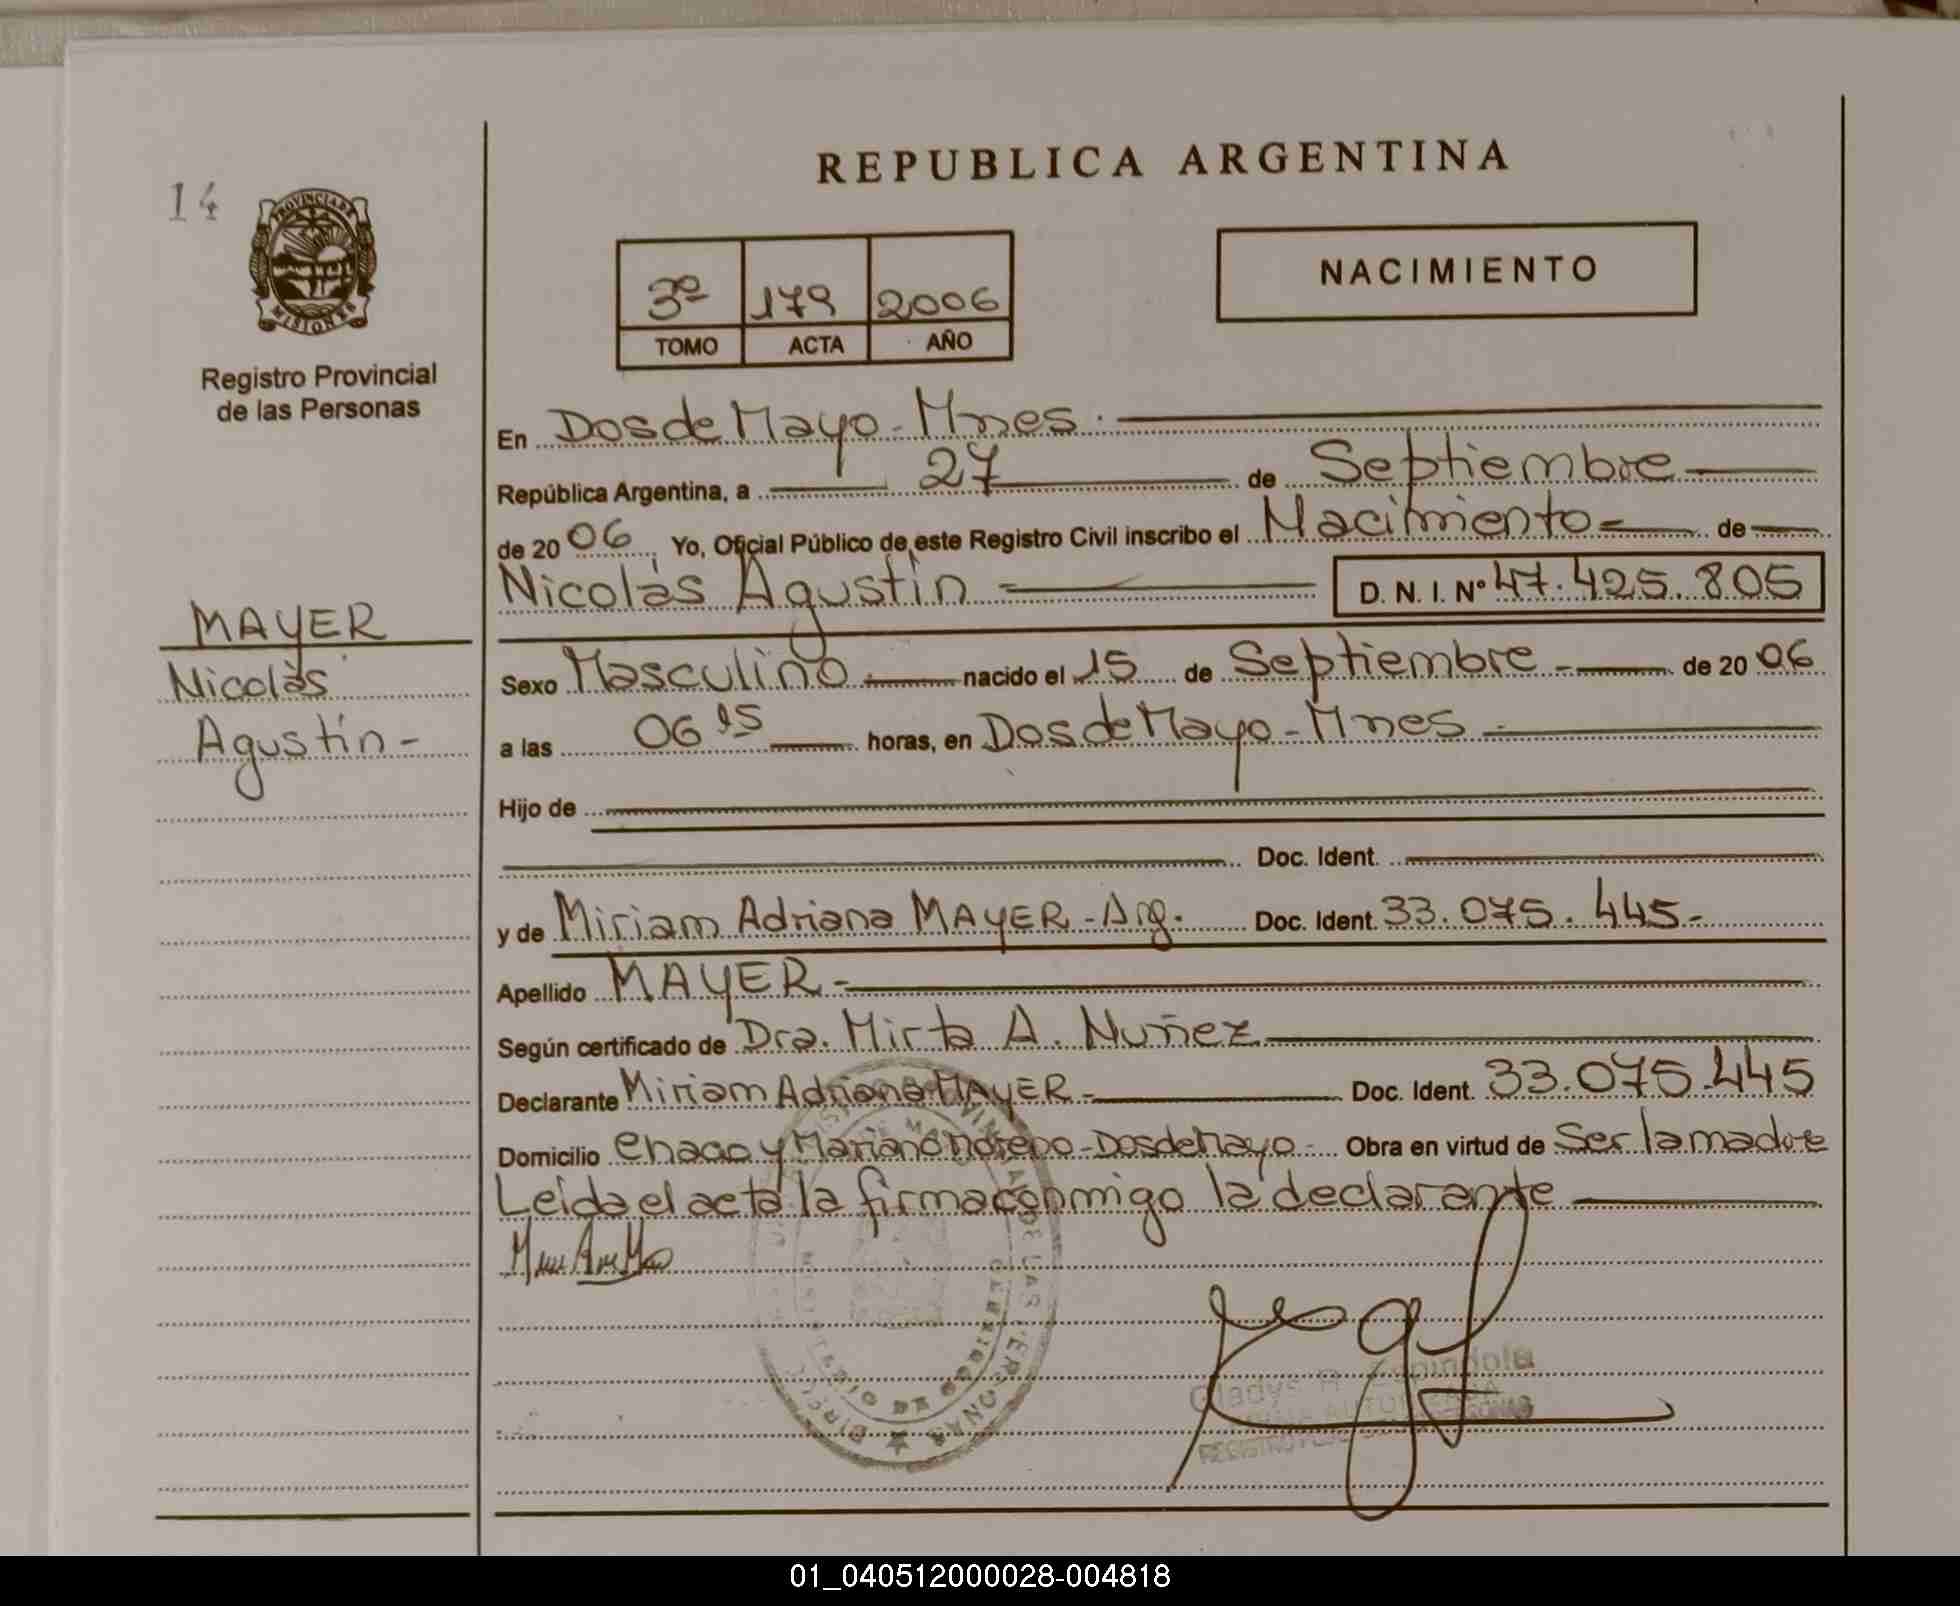 REPUBLICA ARGENTINA
14
PROVINCIA DE
MISIONES
Registro Provincial
de las Personas
NACIMIENTO
3º 179 2006
TOMO ACTA AÑO
En Dos de Mayo - Mnes.
República Argentina, a 27 de Septiembre
de 2006 Yo, Oficial Público de este Registro Civil inscribo el Nacimiento de
Nicolás Agustín D. N. I. Nº 47.425.805
MAYER
Nicolás
Agustín -
Sexo Masculino nacido el 15 de Septiembre - de 2006
a las 06 15 horas, en Dos de Mayo - Mnes -
Hijo de
Doc. Ident.
y de Miriam Adriana MAYER - Arg. Doc. Ident. 33.075.445-
Apellido MAYER -
Según certificado de Dra. Mirta A. Nuñez
Declarante Miriam Adriana MAYER - Doc. Ident. 33.075.445
Domicilio Chaco y Mariano Moreno - Dos de Mayo - Obra en virtud de Ser la madre
Leída el acta la firma conmigo la declarante
Gladys R. Espindola
FIRMA AUTORIZADA
01_040512000028-004818